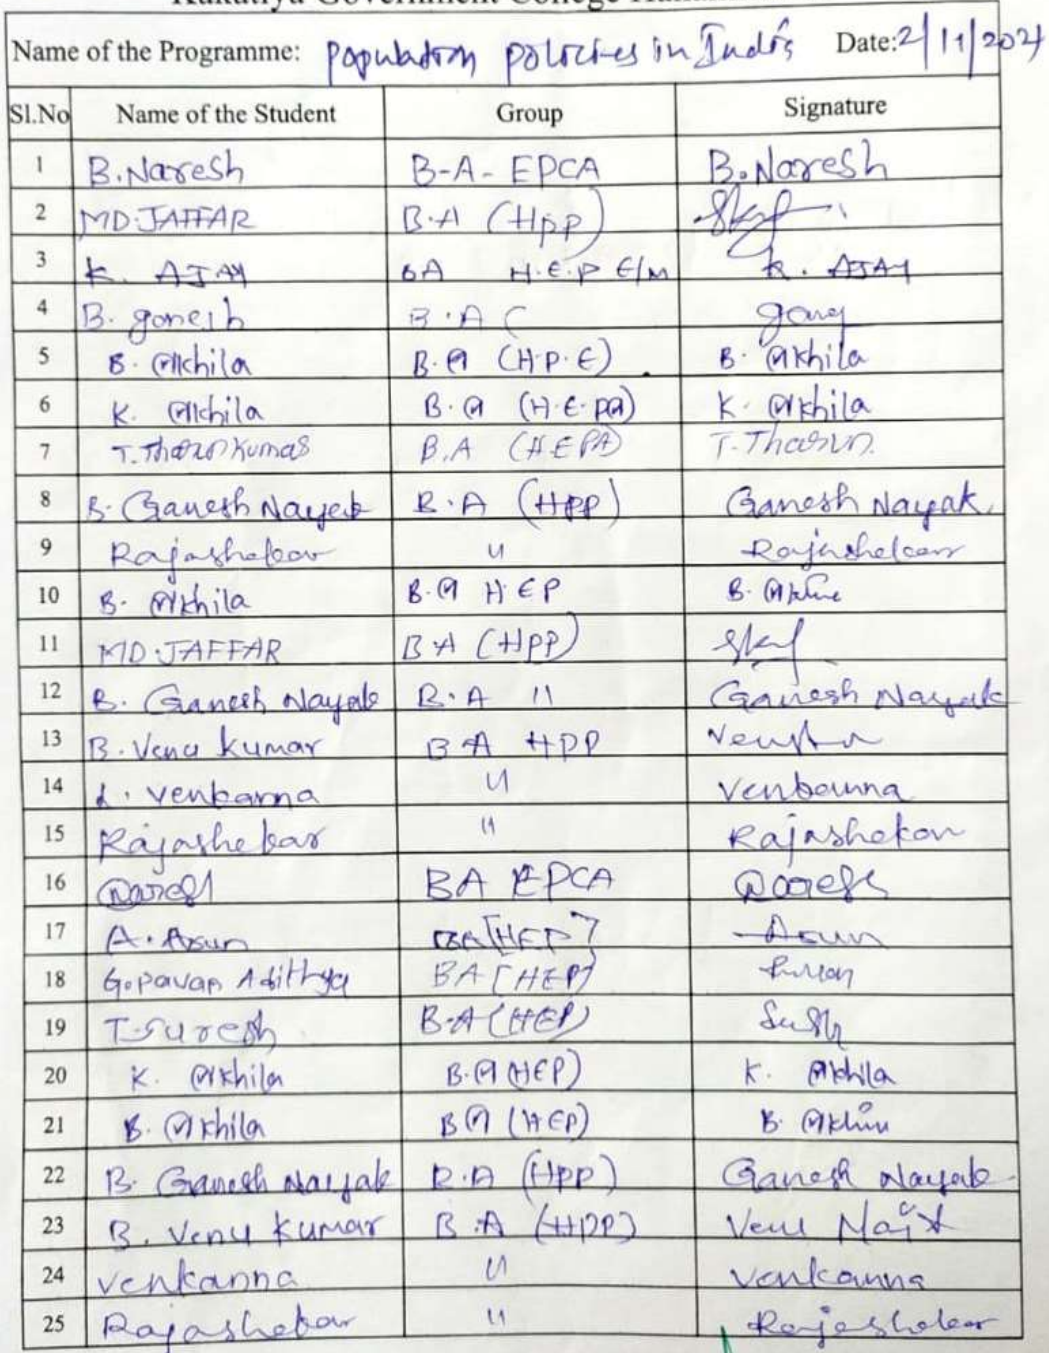 Name of the Programme: Population policies in India Date: 2/11/2021
Sl.No Name of the Student Group Signature
1 B.Naresh B-A- EPCA B.Naresh
2 MD.JAFFAR B.A (HPP)
3 K. AJAY BA H.E.P E/M K. AJAY
4 B. ganesh B.A C
5 B. Akhila B.A (H.P.E) B. Akhila
6 K. Akhila B.A (H.E.PA) K. Akhila
7 T.Tharunkumar B.A (HEPA) T.Tharun.
8 B. Ganesh Nayak B.A (HPP) Ganesh Nayak
9 Rajashekar " Rajashekar
10 B. Akhila B.A H.EP B. Akhila
11 MD.JAFFAR B.A (HPP)
12 B. Ganesh Nayak B.A " Ganesh Nayak
13 B.Venu kumar B A HPP
14 L. Venkanna " Venkanna
15 Rajashekar " Rajashekar
16 Naresh BA EPCA Naresh
17 A. Arun BA[HEP] Arun
18 G.pavan Adithya BA[HEP]
19 T.Suresh B.A(HEP)
20 K. Akhila B.A (HEP) K. Akhila
21 B. Akhila BA (HEP) B. Akhila
22 B. Ganesh Nayak B.A (HPP) Ganesh Nayak
23 B. Venu Kumar B.A (HPP) Venu
24 Venkanna " Venkanna
25 Rajashekar " Rajashekar